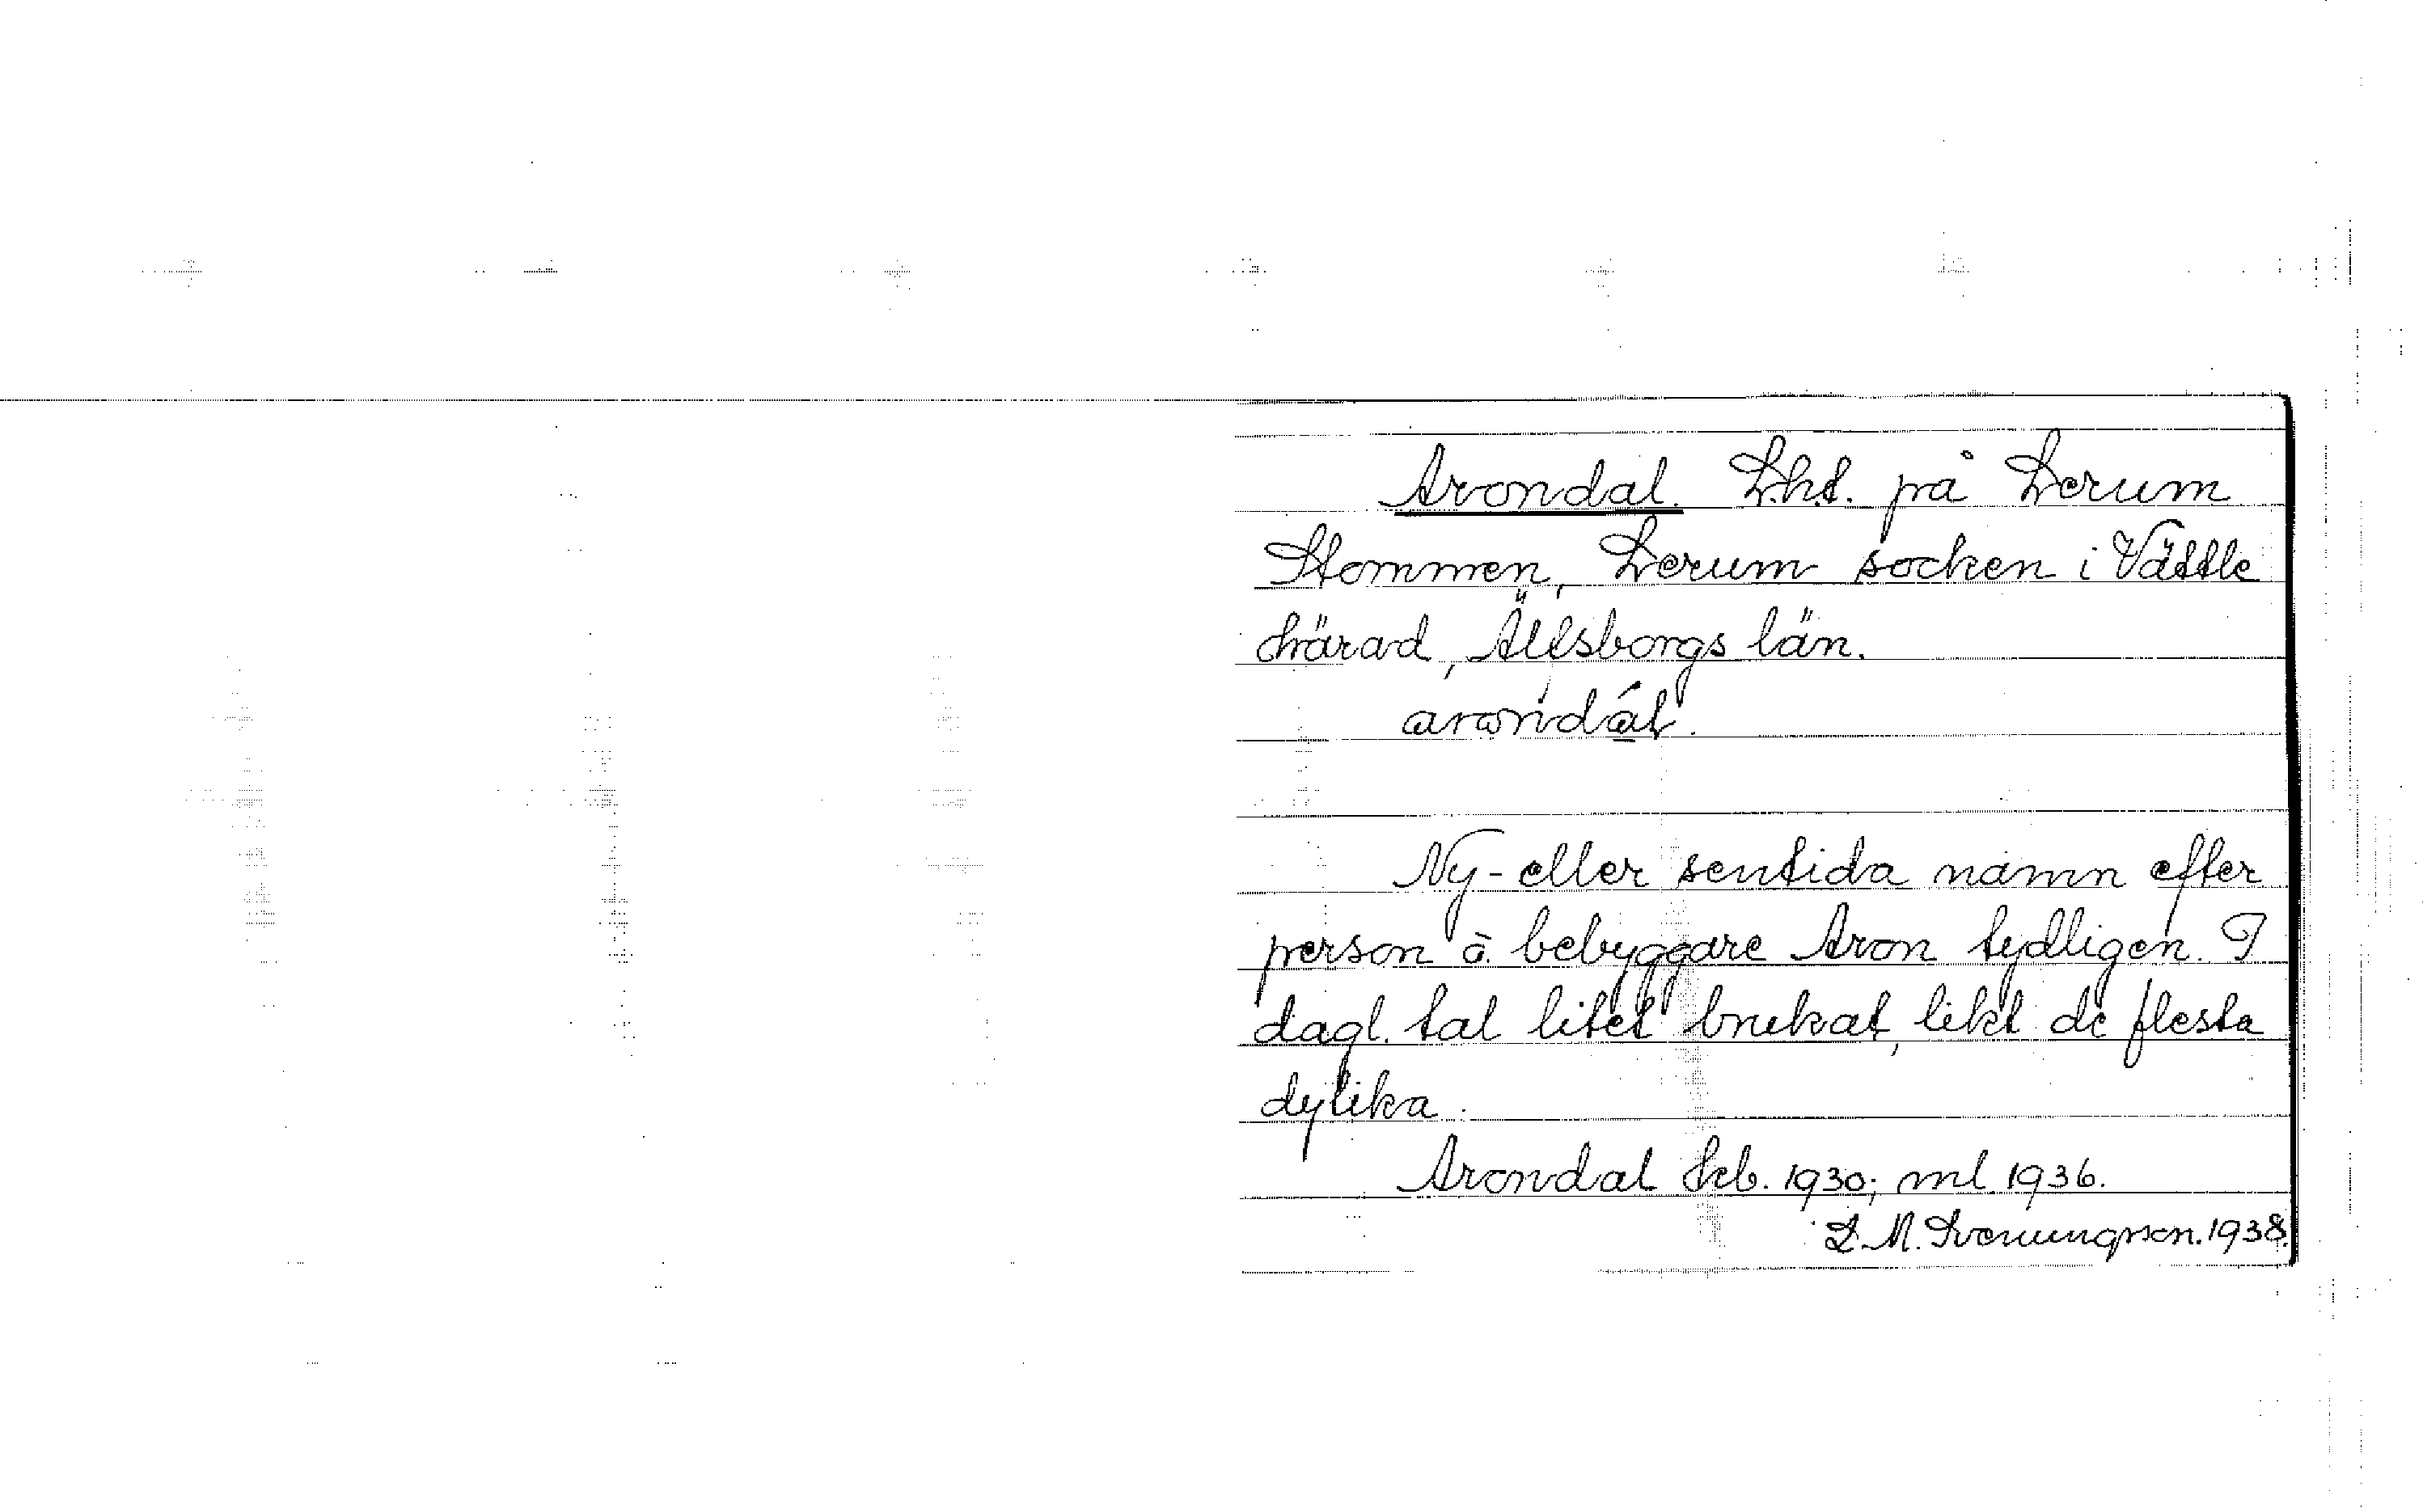 Arondal. Lht. på Lerum
Stommen, Lerum socken i Vättle
härad, Älfsborgs län.
Ny- eller sentida namn efter
person å bebyggare Aron tydligen. I
dagl. tal litet brukat, likt de flesta
dylika.
Arondal Jrb. 1930; ml 1936.
L. M. Svenungsson. 1938.